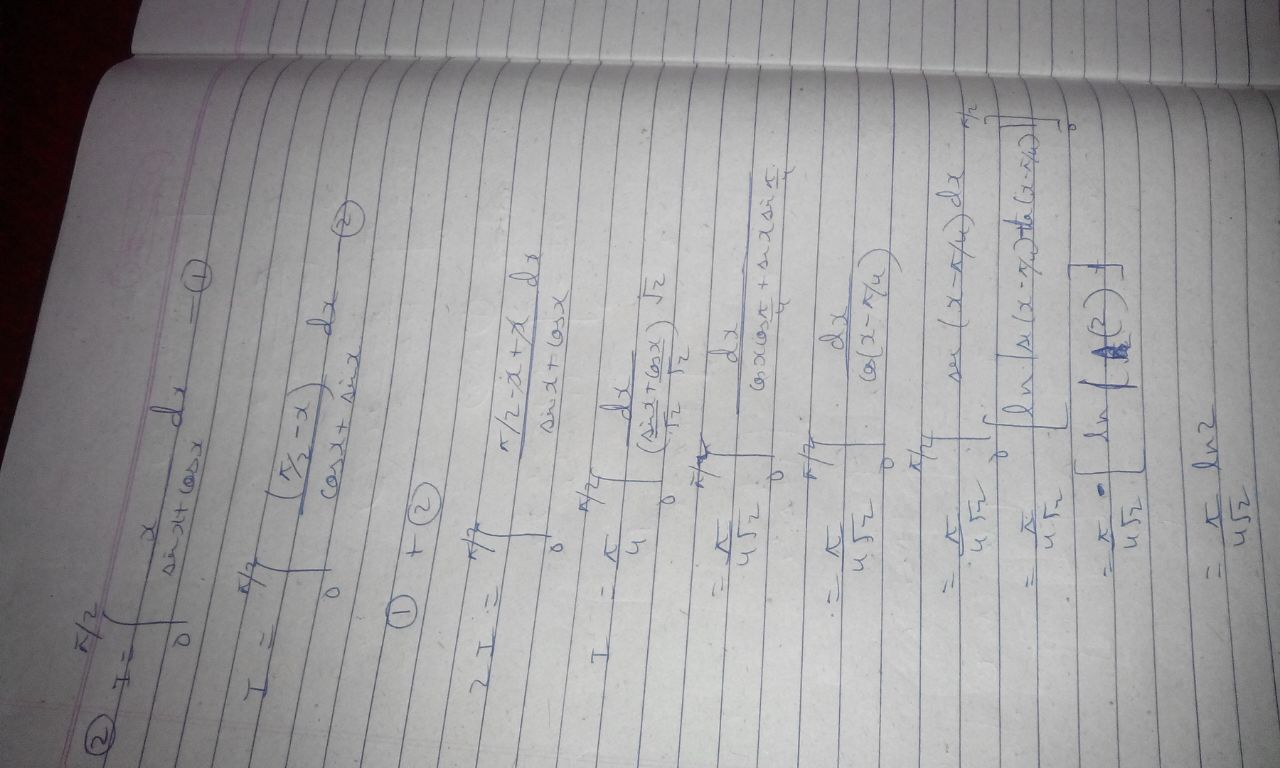 ② I = ∫₀^{π/2} x/(sin x + cos x) dx — ①
I = ∫₀^{π/2} (π/2 - x)/(cos x + sin x) dx — ②
① + ②
2I = ∫₀^{π/2} (π/2 - x + x)/(sin x + cos x) dx
I = π/4 ∫₀^{π/2} dx/((sin x/√2 + cos x/√2) √2)
= π/4√2 ∫₀^{π/2} dx/(cos x cos π/4 + sin x sin π/4)
= π/4√2 ∫₀^{π/2} dx/cos(x - π/4)
= π/4√2 ∫₀^{π/2} sec(x - π/4) dx
= π/4√2 [ln |sec(x - π/4) + tan(x - π/4)|]₀^{π/2}
= π/4√2 [ln (2)]
= π/4√2 ln 2